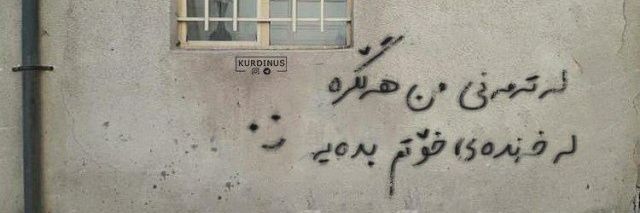 KURDINUS
لە تەمەنی من هەڵگرە
لە خەندەی خۆتم بدەیە
:)